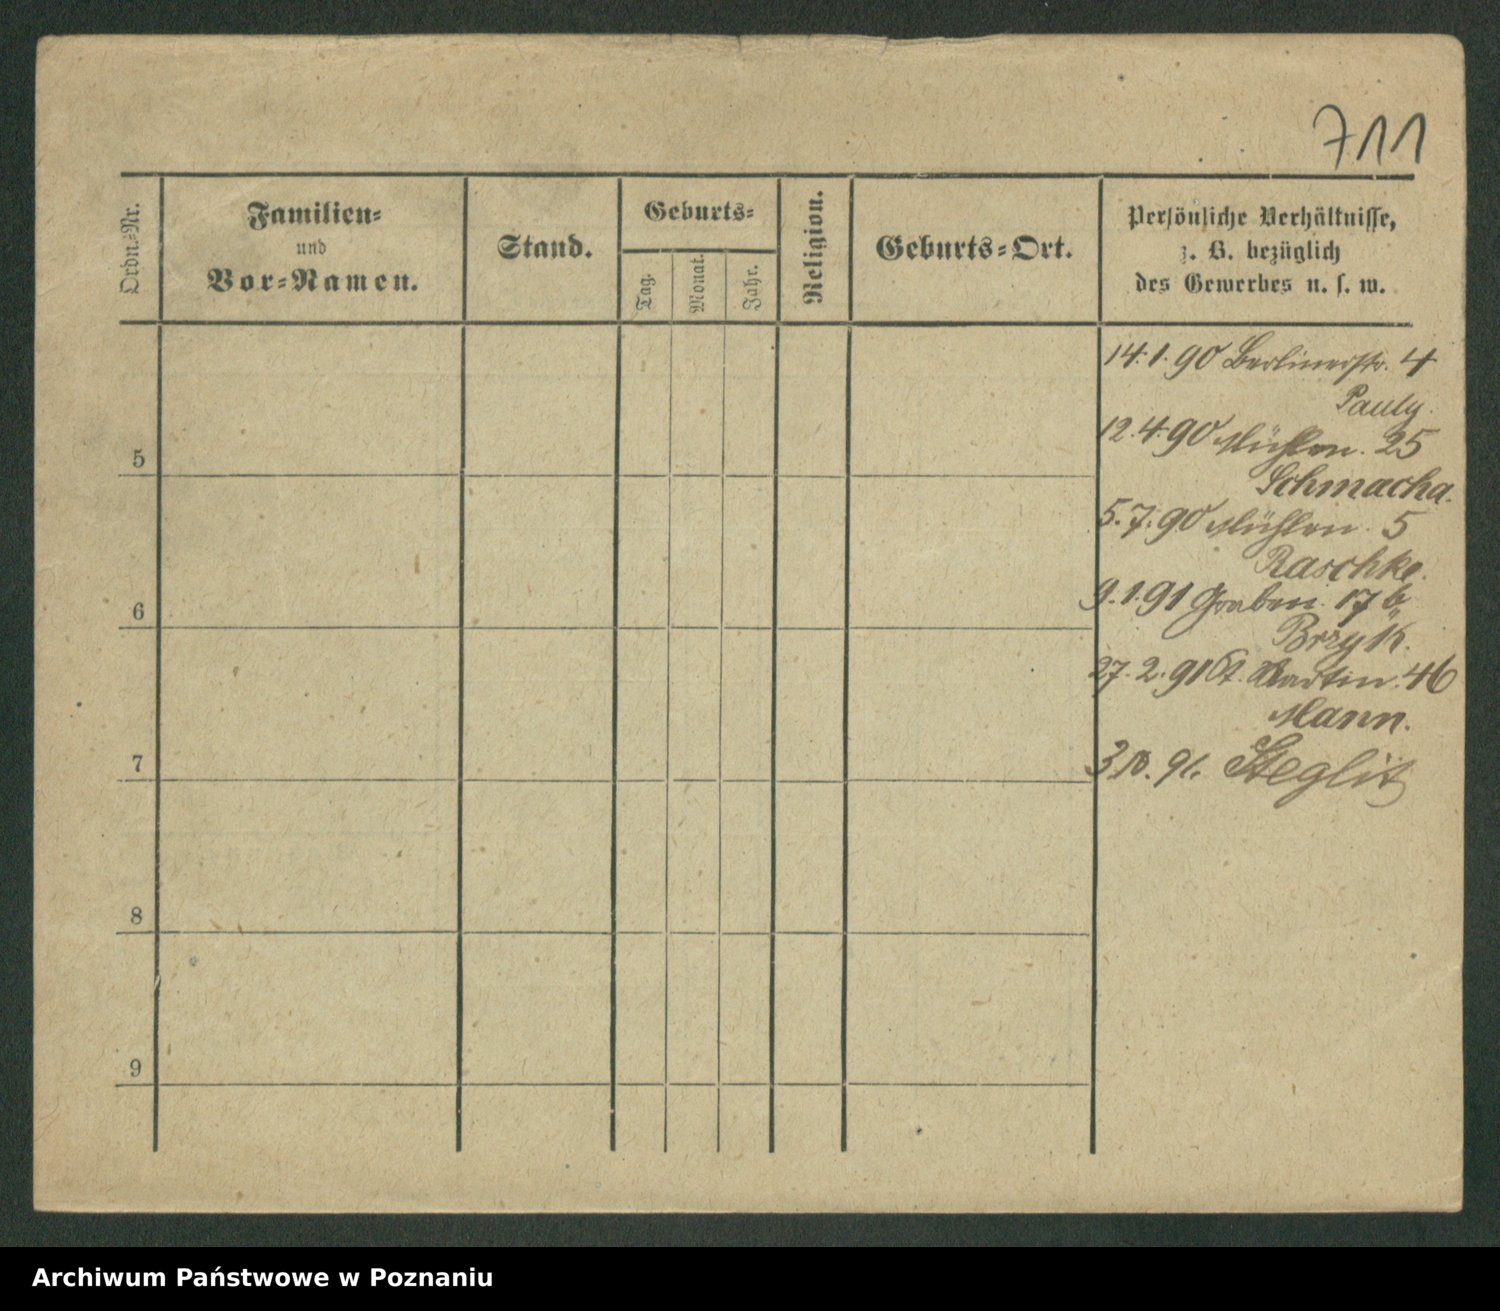 711
Ordn.-Nr.
Familien-
und
Vor-Namen.
Stand.
Geburts-
Tag.
Monat.
Jahr.
Religion.
Geburts-Ort.
Persönliche Verhältnisse,
z. B. bezüglich
des Gewerbes u. s. w.
14.1.90 Berlinerstr. 4
Pauly.
12.4.90 Mühlen. 25
Schmacha.
5
5.7.90 Mühlen. 5
Raschke.
9.1.91 Graben. 17b
Brzyk.
6
27.2.91 St. Martin. 46
Mann.
3 10. 91. Steglitz
7
8
9
Archiwum Państwowe w Poznaniu